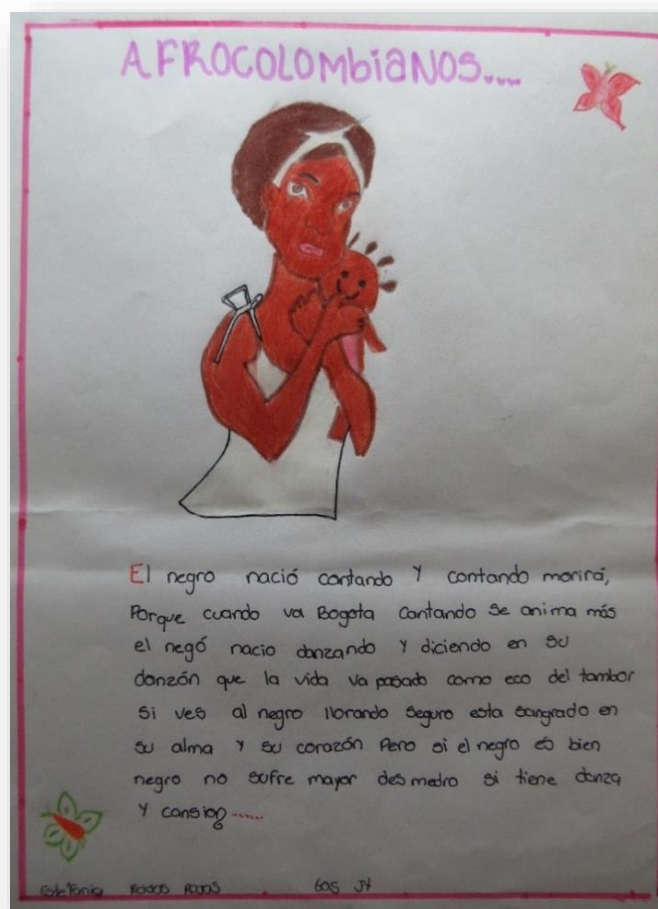 AFROCOLOMbiaNOS...
El negro nació cantando y cantando morirá,
Porque cuando va Bogota Cantando se anima más
el negó nacio danzando y diciendo en su
danzón que la vida va pasado como eco del tambor
si ves al negro llorando seguro esta sangrado en
su alma y su corazón Pero si el negro es bien
negro no sufre mayor desmedro si tiene danza
y cansion......
Rojas 605 JT